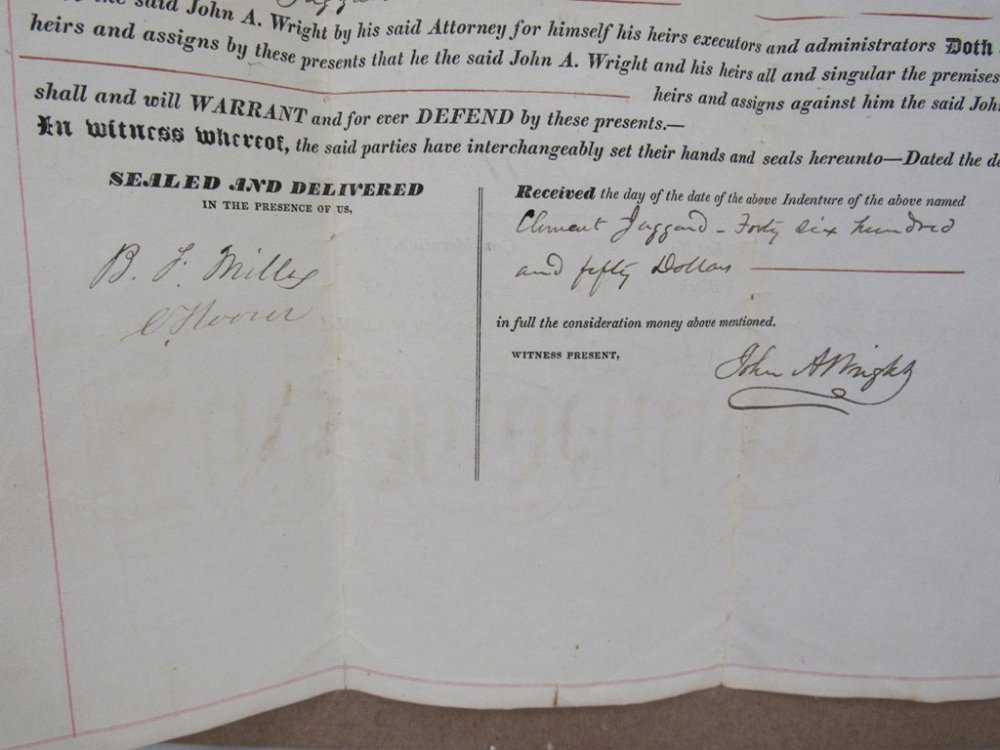 the said John A. Wright by his said Attorney for himself his heirs executors and administrators Doth
heirs and assigns by these presents that he the said John A. Wright and his heirs all and singular the premises
heirs and assigns against him the said John
shall and will WARRANT and for ever DEFEND by these presents.—
In witness whereof, the said parties have interchangeably set their hands and seals hereunto—Dated the
SEALED AND DELIVERED
IN THE PRESENCE OF US,
B. F. Miller
C. Hoover
Received the day of the date of the above Indenture of the above named
Clement Jaggard - Forty six hundred
and fifty Dollars
in full the consideration money above mentioned.
WITNESS PRESENT,
John A Wright